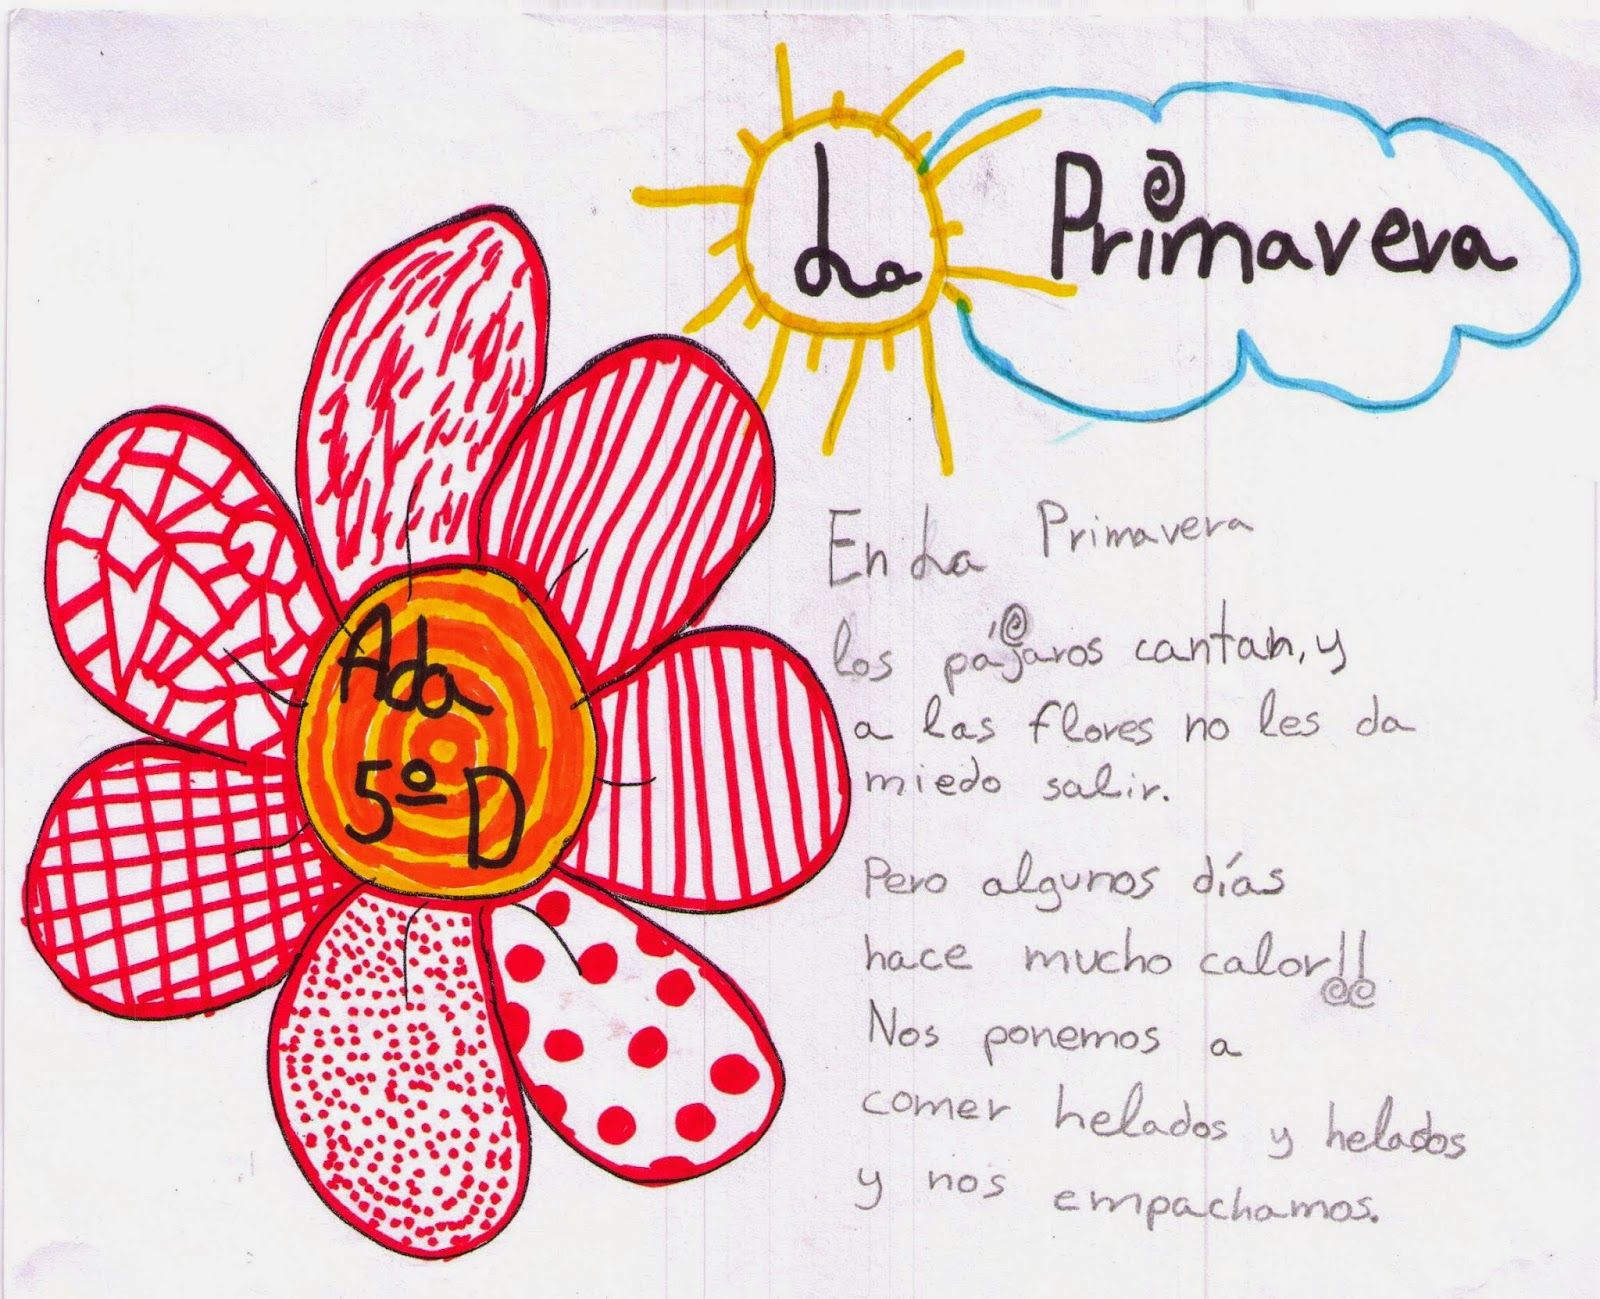 La Primavera
Ada
5º D
En La Primavera
los pájaros cantan, y
a las flores no les da
miedo salir.
Pero algunos días
hace mucho calor!!
Nos ponemos a
comer helados y helados
y nos empachamos.